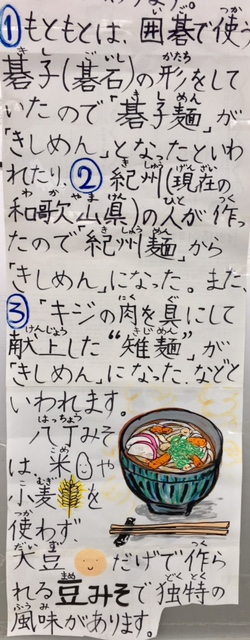 ①もともとは、囲碁で使う
碁子(碁石)の形をして
いたので「碁子麺」が
「きしめん」となったといわ
れたり、②紀州(現在の
和歌山県)の人が作っ
たので「紀州麺」から
「きしめん」になった。また
③「キジの肉を具にして
献上した“雉麺”が
「きしめん」になった、などと
いわれます。
八丁みそ
は、米や
小麦を
使わず、
大豆だけで作ら
れる豆みそで独特の
風味があります。